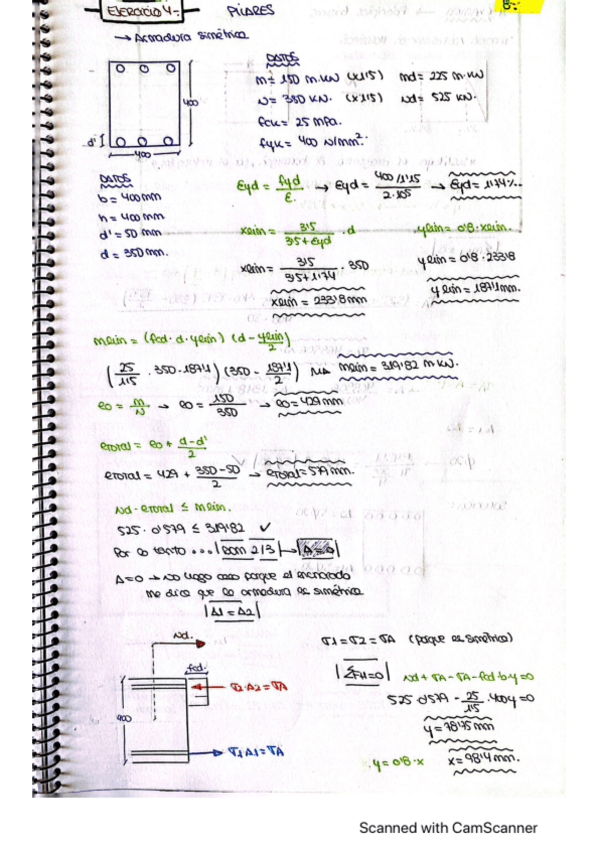 Ejercicio 4:- PILARES
B:-
→ Armadura simétrica
DATOS
m = 150 m·kN (x1'5) md = 225 m·kN
N = 350 kN. (x1'5) Nd = 525 kN.
fck = 25 mPa.
fyk = 400 N/mm².
400
d'
400
DATOS
b = 400mm
h = 400mm
d' = 50 mm
d = 350mm.
Eyd = fyd/E → Eyd = 400/1'15 / 2·10⁵ → Eyd = 1'174‰
xlim = 3'5/3'5+Eyd · d
ylim = 0'8·xlim.
xlim = 3'5/3'5+1'74 · 350
ylim = 0'8·233'8
xlim = 233'8mm
ylim = 187'1mm.
mlim = (fcd·d·ylim) (d - ylim/2)
(25/1'5 · 350·187'1) (350 - 187'1/2) mlim = 319'82 m·kN.
e0 = m/N → e0 = 150/350 → e0 = 429mm
etotal = e0 + d-d'/2
etotal = 429 + 350-50/2 → etotal = 579mm.
Nd·etotal ≤ mlim.
525·0'579 ≤ 319'82 ✓
Por lo tanto ... |Dom 2/3| → |A=0|
A=0 → no hago caso porque el enunciado
me dice que la armadura es simétrica
|A1 = A2|
Nd.
fcd.
400
σ2·A2 = σA
σ1·A1 = σA
σ1 = σ2 = σA (porque es simétrico)
|ΣFH=0| Nd + σA - σA - fcd·b·y = 0
525·0'579 - 25/1'5 · 400y = 0
y = 78'75mm
y = 0'8·x x = 98'4mm.
Scanned with CamScanner